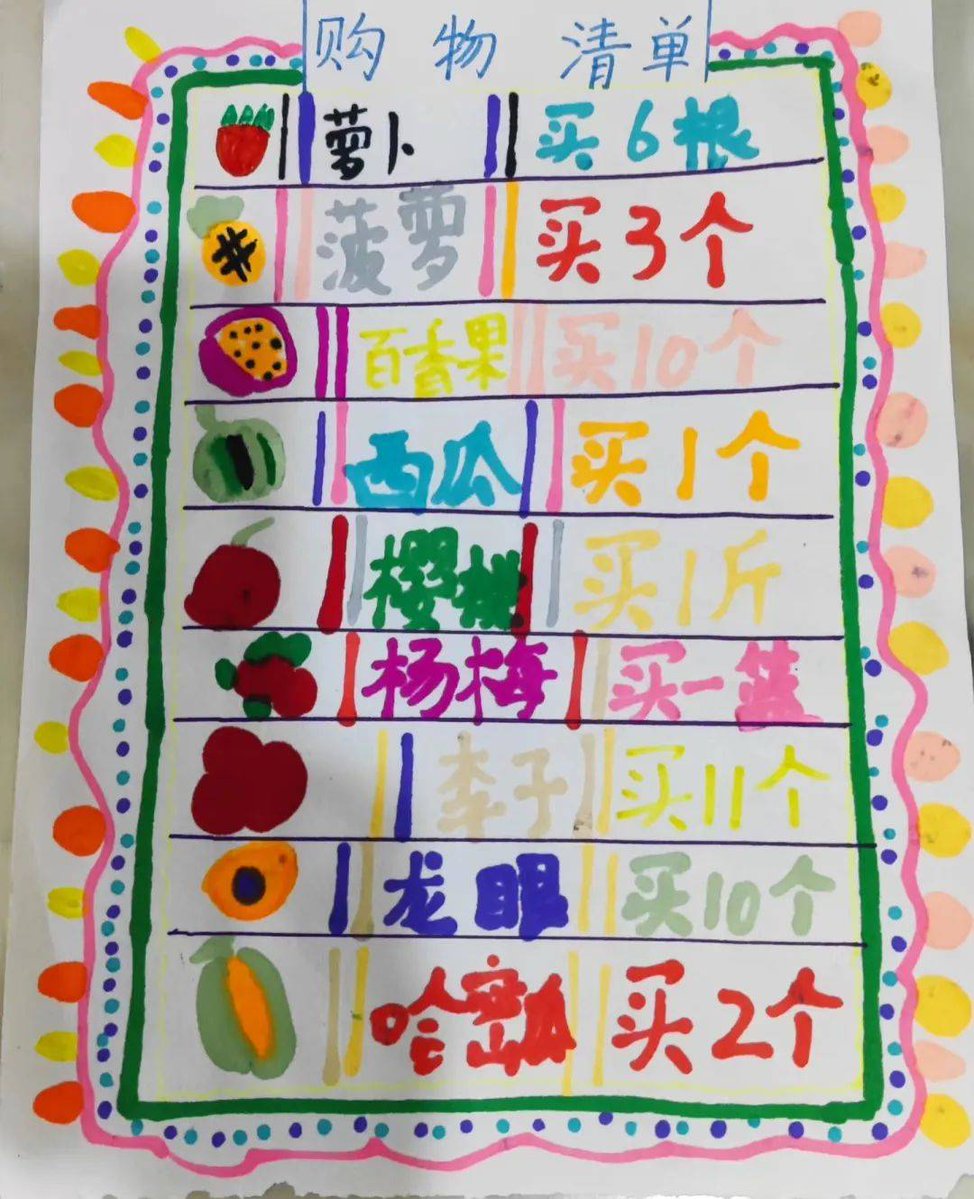 购物清单
萝卜 买6根
菠萝 买3个
百香果 买10个
西瓜 买1个
樱桃 买1斤
杨梅 买一篮
李子 买11个
龙眼 买10个
哈密瓜 买2个